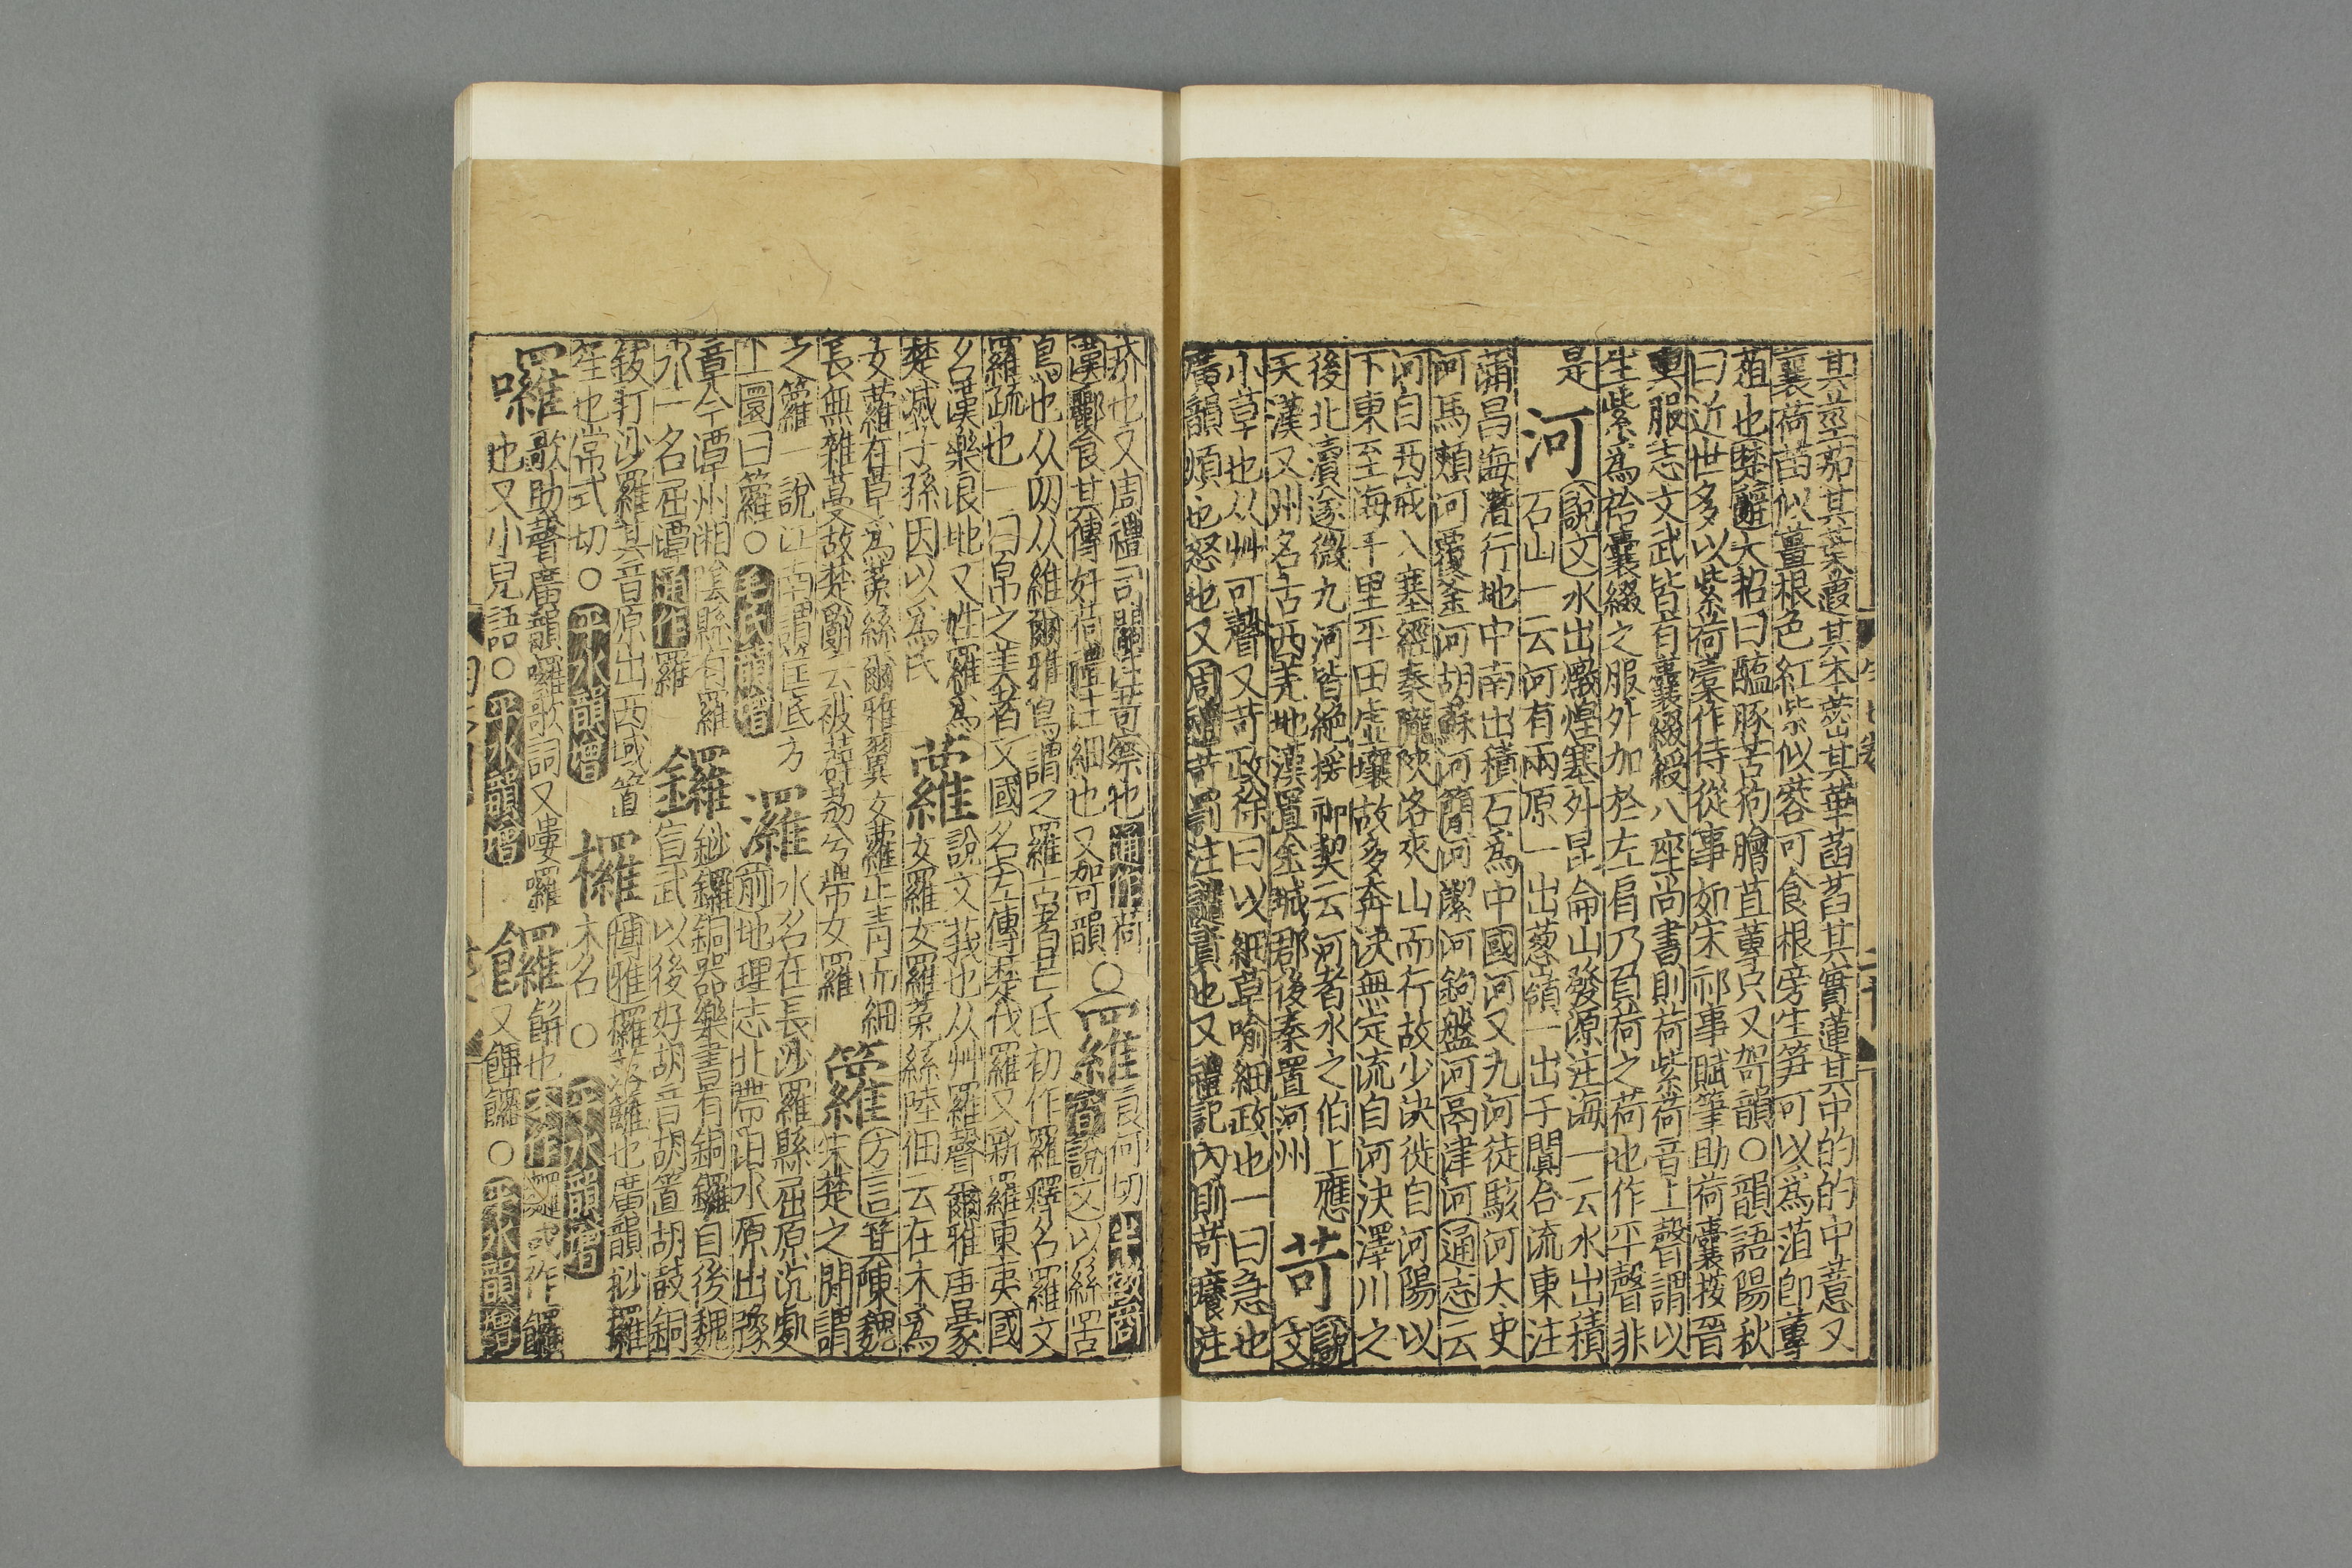 其莖茄其葉蕸其本蔤其華菡萏其實蓮其中的的中薏又
蘘荷苗似薑根色紅紫似蓉可食根旁生笋可以爲菹卽蓴
菹也楚辭大招曰醢豚苦狗膾苴蓴只又架韻○韻語陽秋
曰近世多以紫荷橐作侍從事如宋祁事賦筆助荷囊按晉
輿服志文武皆有囊綴綬八座尚書則荷紫荷音上聲謂以
生紫爲袷囊綴之服外加於左肩乃負荷之荷也作平聲非
是
河
說文水出燉煌塞外昆侖山發源注海一云水出積
石山一云河有兩原一出葱嶺一出于闐合流東注
蒲昌海潛行地中南出積石爲中國河又九河徒駭河大史
河馬頰河覆釜河胡蘇河簡河潔河鉤盤河鬲津河通志云
河自西戒入塞經秦隴陜洛夾山而行故少決徙自河陽以
下東至海千里平田虛壤故多奔決無定流自河決澤川之
後北瀆遂微九河皆絶援神契云河者水之伯上應
天漢又州名古西羌地漢置金城郡後秦置河州
苛
說
文
小草也从艸可聲又苛政徐曰以細草喻細政也一曰急也
廣韻煩也怒也又周禮苛罰注譴責也又禮記內則苛癢注
疥也又周禮司關注苛察也通作荷
漢酈食其傳好荷禮注細也又哿韻○
羅
良何切半徵商
音說文以絲罟
鳥也从网从維爾雅鳥謂之羅古者芒氏初作羅釋名羅文
羅疏也一曰帛之美者又國名左傳楚伐羅又新羅東夷國
名漢樂浪地又姓羅爲
楚滅子孫因以爲氏
蘿
說文莪也从艸羅聲爾雅唐蒙
女蘿女蘿菟絲陸佃云在木爲
女蘿在草爲菟絲爾雅翼女蘿正青而細
長無雜蔓故楚辭云被薜荔兮帶女蘿
籮
方言箕陳魏
宋楚之閒謂
之籮一說江南謂筐底方
上圜曰籮○毛氏韻增
灑
水名在長沙羅縣屈原沉處
前地理志北帶汨水原出豫
章今潭州湘陰縣有羅
水一名屈潭通作羅
鑼
鈔鑼銅器樂書有銅鑼自後魏
宣武以後好胡音胡笛胡鼓銅
鈸打沙羅其音原出西域笛
笙也常式切○平水韻增
欏
博雅欏落籬也廣韻桫欏
木名○平水韻增
囉
歌助聲廣韻囉歌詞又嘍囉
也又小兒語○平水韻增
饠
餅也
又饆饠○平水韻增